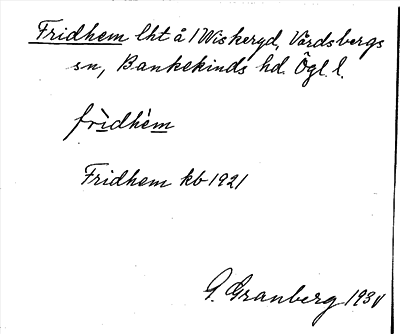 Fridhem lht å 1 Wiskeryd, Vårdsbergs
sn, Bankekinds hd. Ögl. l.
frìdhèm
Fridhem kb 1921
G. Granberg